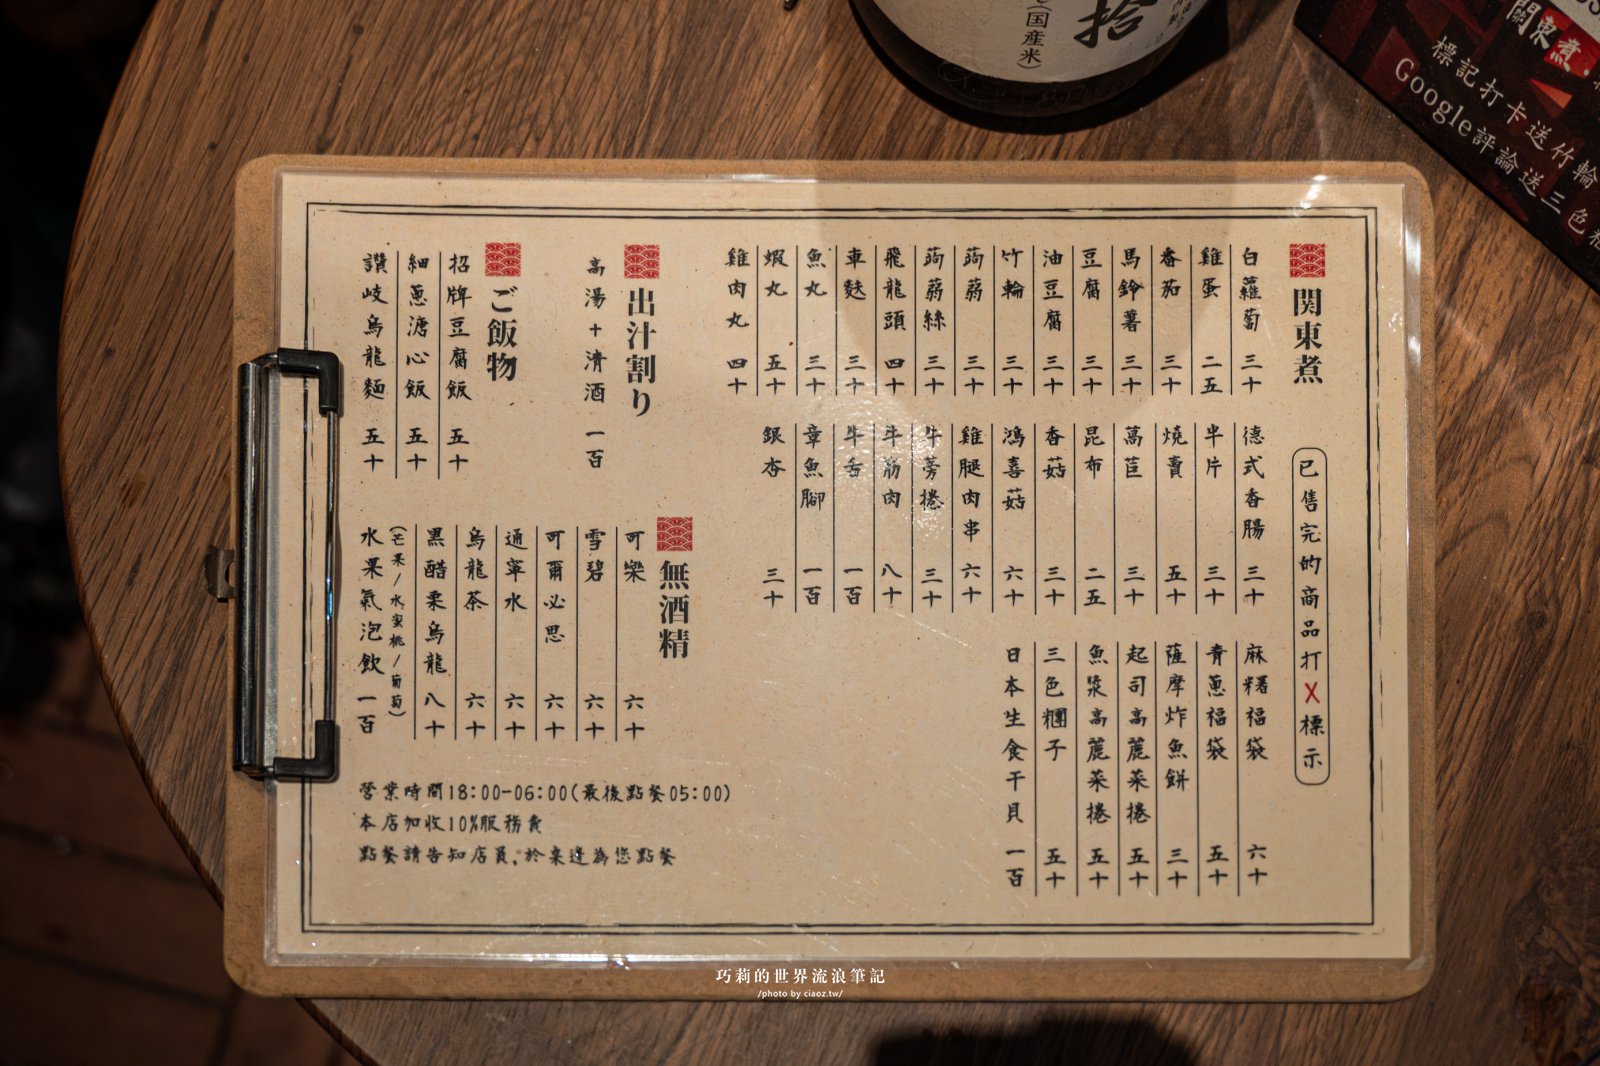 関東煮
已售完的商品打X標示
白蘿蔔 三十
雞蛋 二五
番茄 三十
馬鈴薯 三十
豆腐 三十
油豆腐 三十
竹輪 三十
蒟蒻 三十
蒟蒻絲 三十
飛龍頭 四十
車麩 三十
魚丸 三十
蝦丸 五十
雞肉丸 四十
德式香腸 三十
半片 三十
燒賣 五十
萵苣 三十
昆布 二五
香菇 三十
鴻喜菇 六十
雞腿肉串 六十
牛蒡捲 三十
牛筋肉 八十
牛舌 一百
章魚腳 一百
銀杏 三十
麻糬福袋 六十
青蔥福袋 五十
薩摩炸魚餅 三十
起司高麗菜捲 五十
魚漿高麗菜捲 五十
三色糰子 五十
日本生食干貝 一百
出汁割り
高湯+清酒 一百
ご飯物
招牌豆腐飯 五十
細蔥溏心飯 五十
讚岐烏龍麵 五十
無酒精
可樂 六十
雪碧 六十
可爾必思 六十
通寧水 六十
烏龍茶 六十
黑醋栗烏龍 八十
(芒果/水蜜桃/葡萄)
水果氣泡飲 一百
營業時間18:00-06:00(最後點餐05:00)
本店加收10%服務費
點餐請告知店員,於桌邊為您點餐
拾
(国産米)
關東煮
標記打卡送竹輪
Google評論送三色
巧莉的世界流浪筆記
/photo by ciaoz.tw/